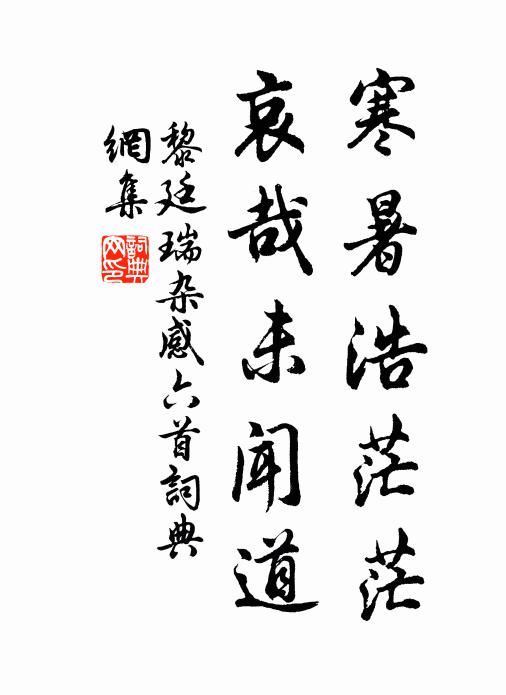 寒暑浩茫茫
哀哉未聞道
黎廷瑞杂感六首詞典
網集
詞典
网印